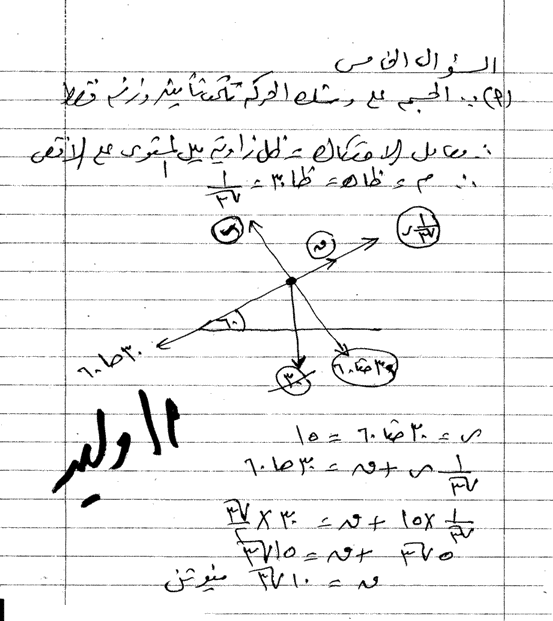 السؤال الخامس
(أ) ∵ الجسم على وشك الحركة تحت تأثير وزنه فقط
∴ معامل الاحتكاك = ظل زاوية ميل المستوى على الأفقى
∴ م = ظا هـ = ظا ٣٠ = ١/√٣
ر
ق
١/√٣ ر
٦٠
٣٠ حا ٦٠
٣٠
٣٠ حتا ٦٠
م/ وليد
ر = ٣٠ حتا ٦٠ = ١٥
١/√٣ ر + ق = ٣٠ حا ٦٠
١/√٣ × ١٥ + ق = ٣٠ × √٣/٢
٥√٣ + ق = ١٥√٣
ق = ١٠√٣ نيوتن